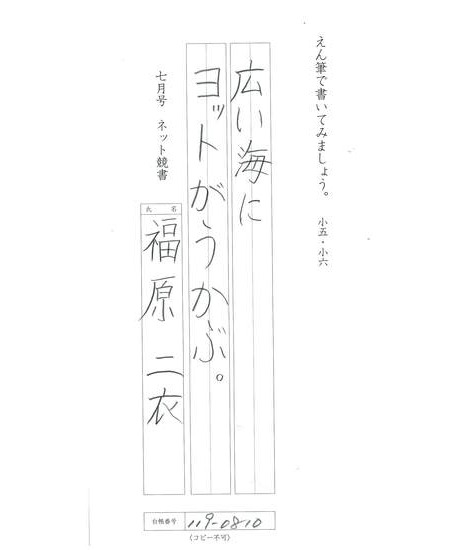 えん筆で書いてみましょう。 小五・小六
広い海に
ヨットがうかぶ。
七月号 ネット競書
氏名
福原 二衣
台帳番号 119-0810
(コピー不可)